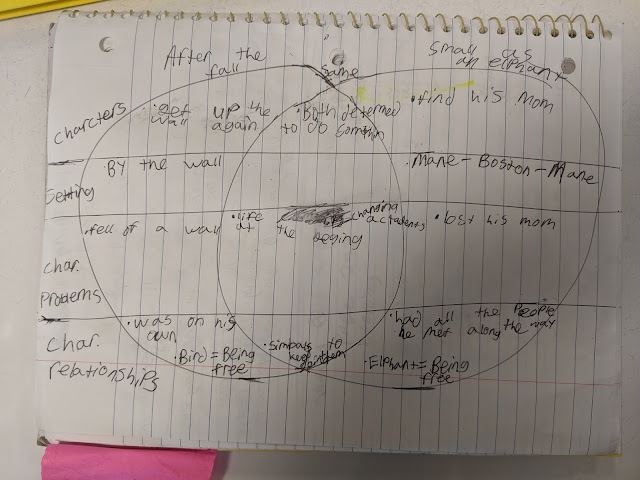 After the
fall
Same
small as
an elephant
Charcters
get up the
wall again
• Both determed
to do somthin
• find his mom
Setting
BY the wall
• Mane - Boston - Mane
Char.
Problems
• fell of a wall
• life changing
actadents
at the beging
• lost his mom
Char.
relationships
• was on his
own
• Bird = Being
free
• simbals to
keep
• had all the People
he met along the way
• Elephant = Being
free